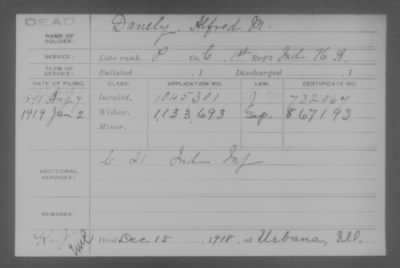 DEAD
NAME OF SOLDIER: Danely, Alfred M.
SERVICE: Late rank, P Co. C 1st Reg't Ind. H. A.
TERM OF SERVICE: Enlisted , 1 Discharged , 1
DATE OF FILING. CLASS. APPLICATION NO. LAW. CERTIFICATE NO.
Aug 7 Invalid, 1045301 J 732067
1919 Jan 2 Widow, 1,133,693 867193
Minor,
ADDITIONAL SERVICES: C 21 Ind Inf
REMARKS:
Died Dec 15 1918, at Urbana, Ill.